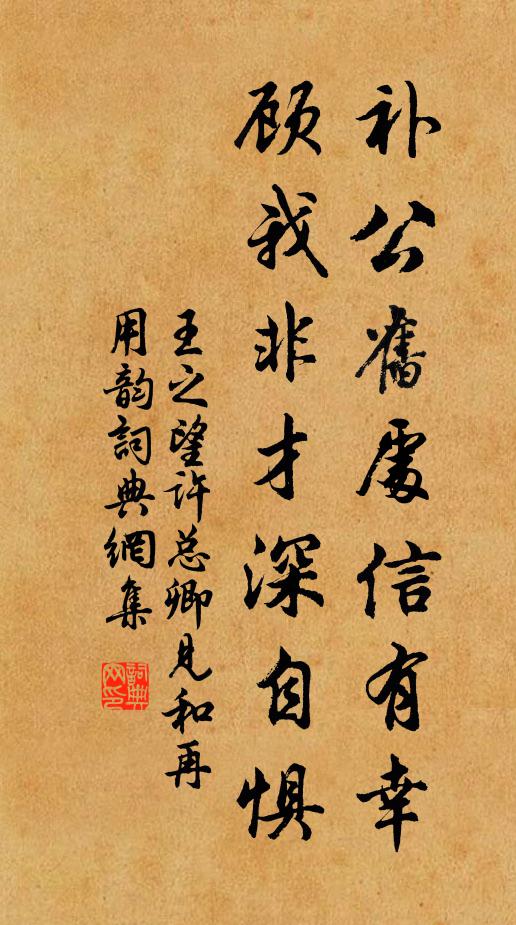 补公舊處信有幸
顾我非才深自惧
王之望许总卿见和再
用韵詞典網集
詞典
网印